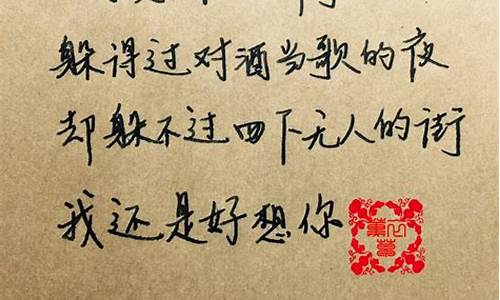 躲得过对酒当歌的夜
却躲不过四下无人的街
我还是好想你